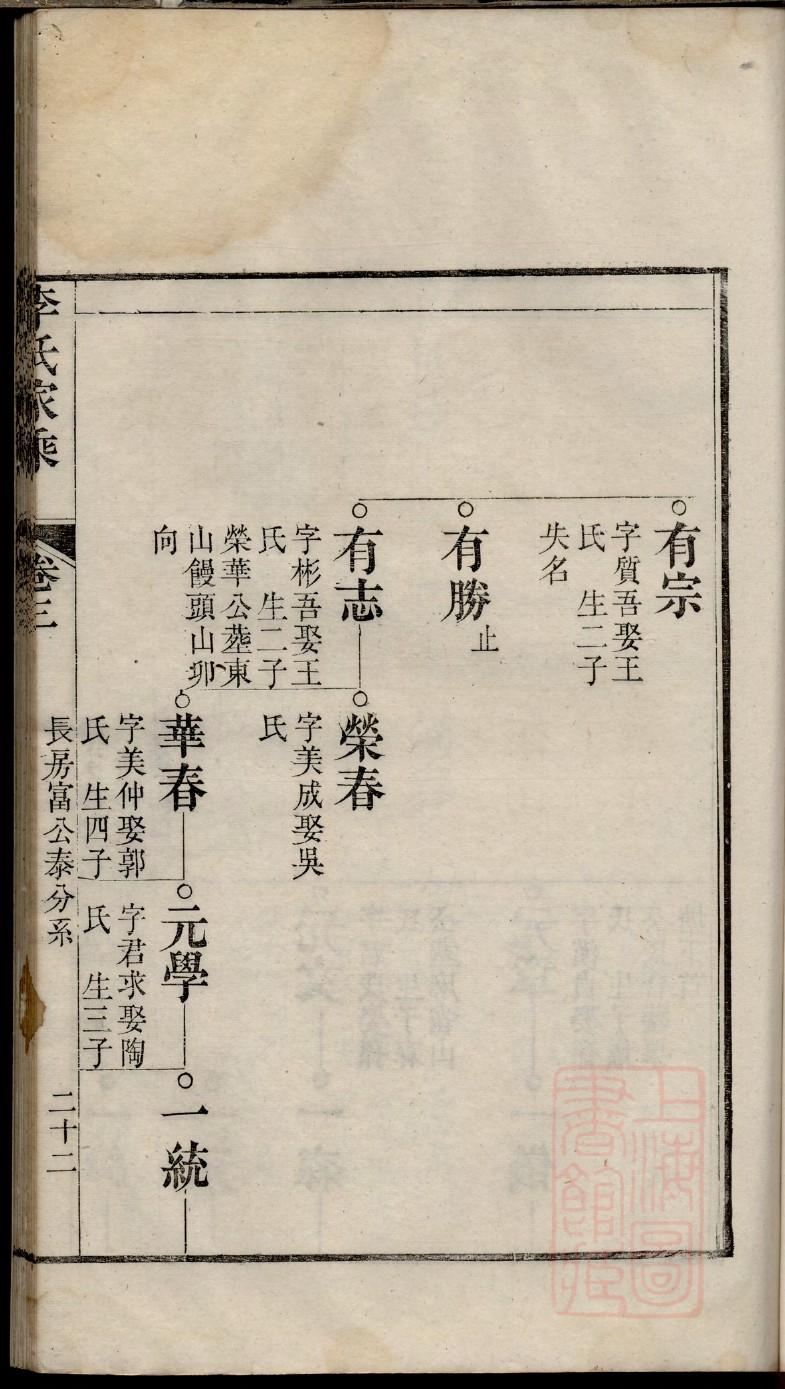 有宗
字質吾娶王
氏 生二子
失名
有勝
止
有志
字彬吾娶王
氏 生二子
榮華公塟東
山饅頭山卯
向
榮春
字美成娶吳
氏
華春
字美仲娶郭
氏 生四子
元學
字君求娶陶
氏 生三子
一統
李氏家乘
卷三
長房富公泰分系
二十二
上海圖
書館藏